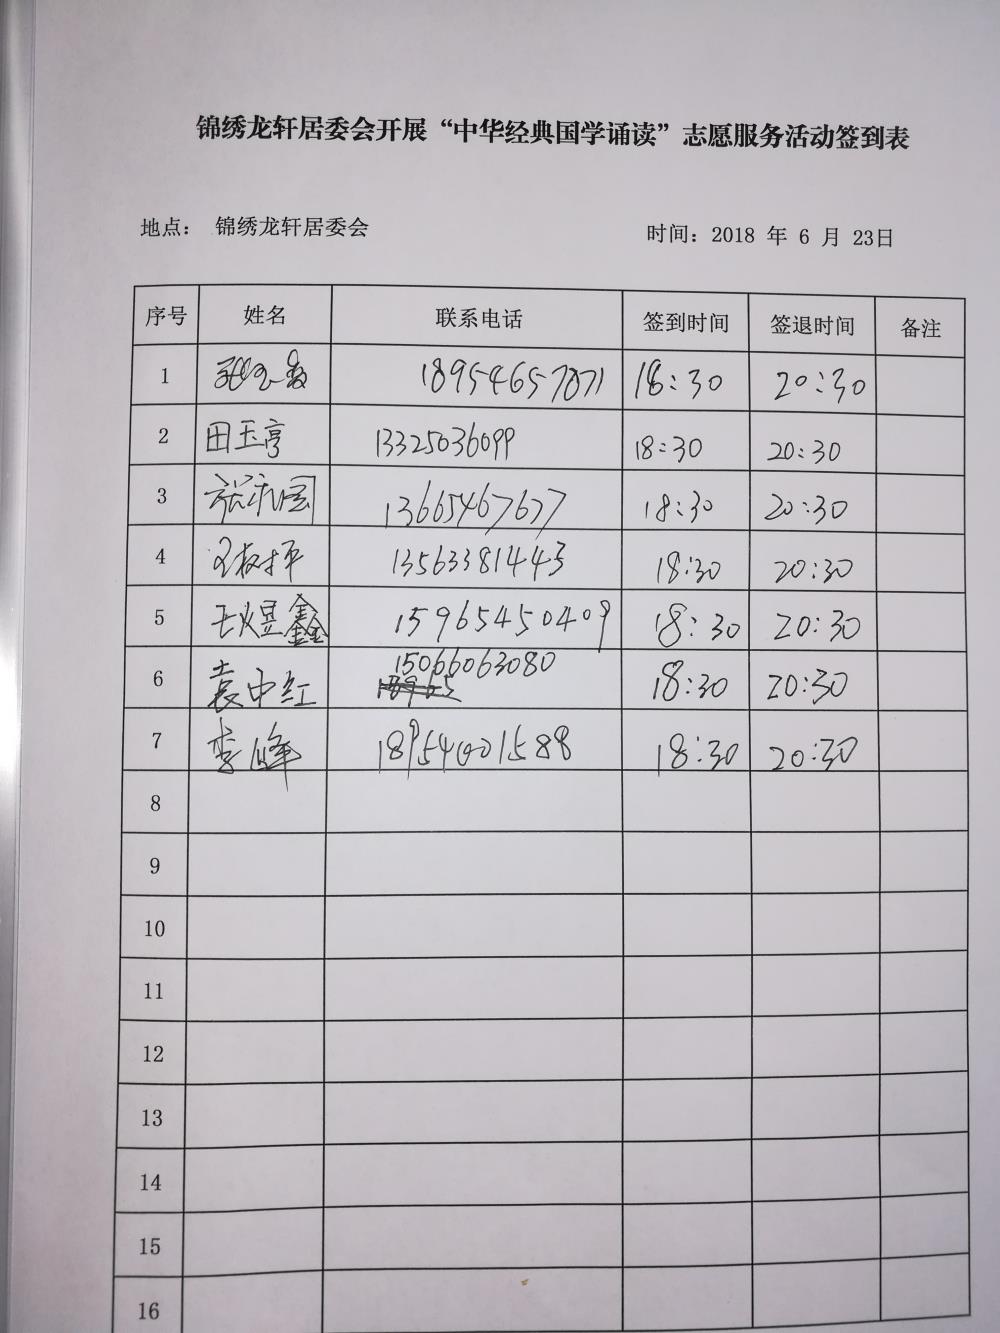 锦绣龙轩居委会开展“中华经典国学诵读”志愿服务活动签到表
地点： 锦绣龙轩居委会 时间：2018 年 6 月 23日
序号 姓名 联系电话 签到时间 签退时间 备注
1 18954657871 18:30 20:30
2 田玉亭 13325036099 18:30 20:30
3 张利国 13665467677 18:30 20:30
4 13563381443 18:30 20:30
5 王煜鑫 15965450409 18:30 20:30
6 袁中红 15066063080 18:30 20:30
7 李峰 18954001588 18:30 20:30
8
9
10
11
12
13
14
15
16